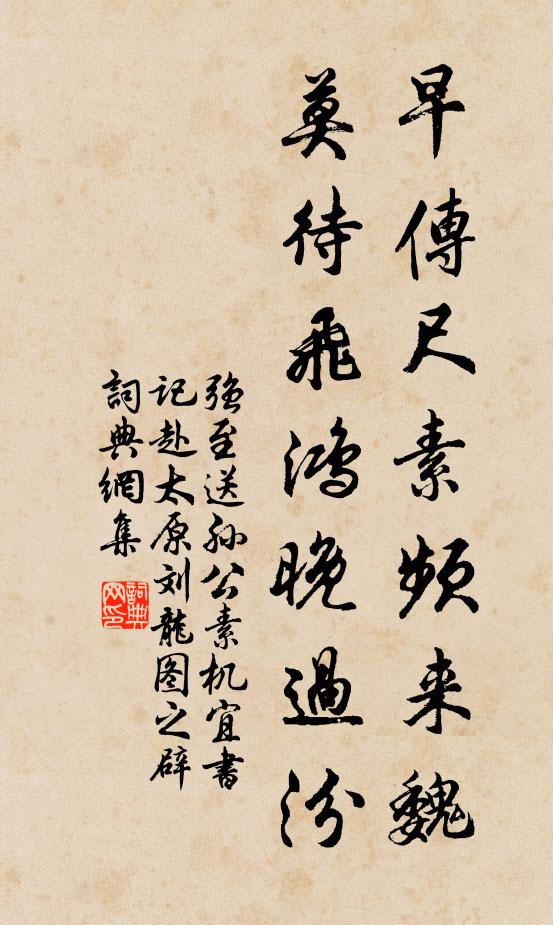 早傳尺素頻来魏
莫待飛鴻晚過汾
強至送孙公素机宜書
記赴太原刘龍图之辟
詞典網集
詞典
网印